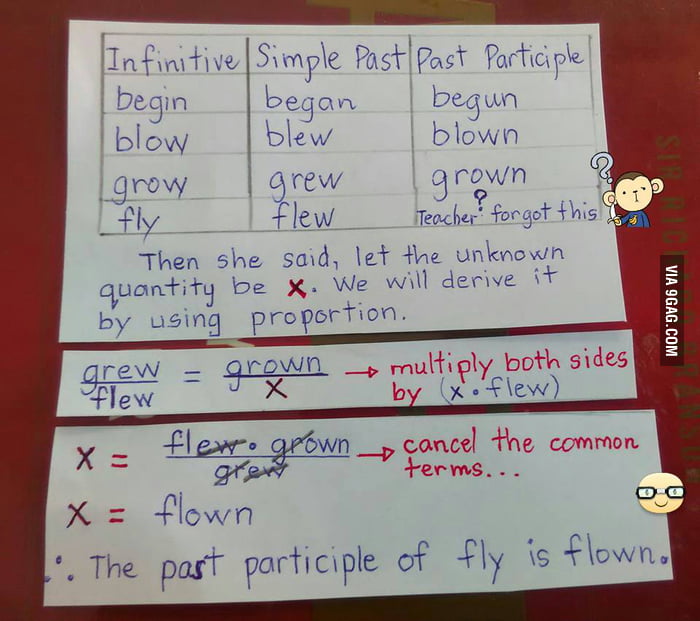 Infinitive Simple Past Past Participle
begin began begun
blow blew blown
grow grew grown
?
fly flew Teacher forgot this
Then she said, let the unknown
quantity be x. We will derive it
by using proportion.
grew = grown → multiply both sides
flew x by (x • flew)
x = flew • grown → cancel the common
grew terms...
x = flown
∴ The past participle of fly is flown.
VIA 9GAG.COM